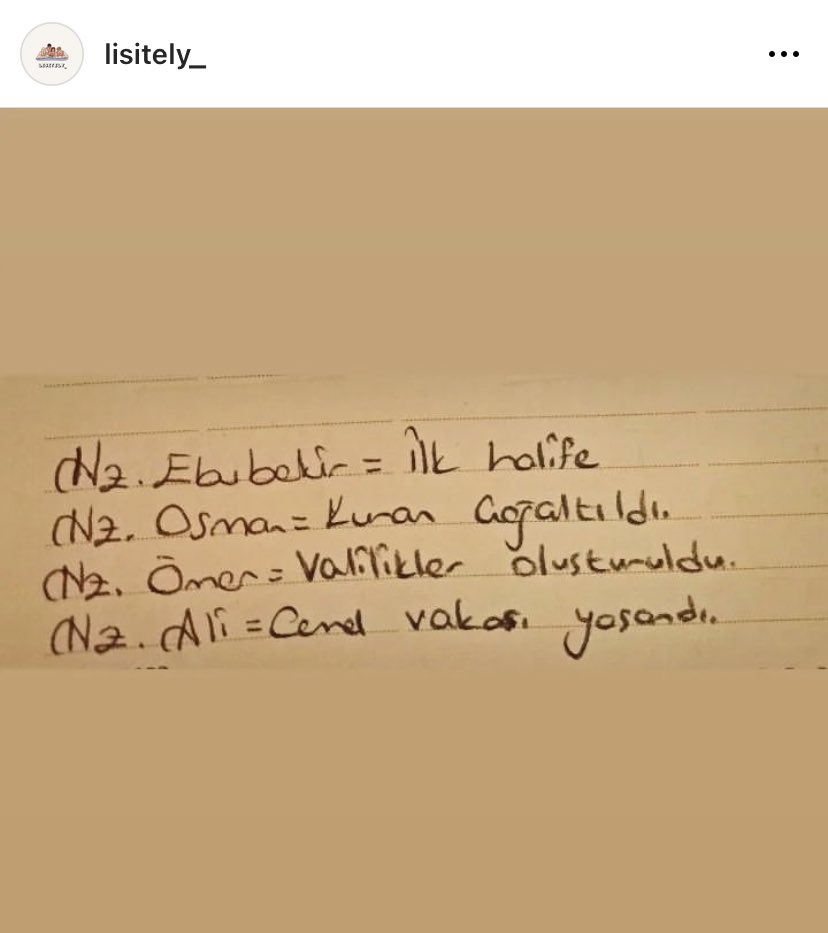 lisitely_
Hz. Ebubekir = İlk halife
Hz. Osman = Kuran Çoğaltıldı.
Hz. Ömer = Valilikler oluşturuldu.
Hz. Ali = Cemel vakası yaşandı.